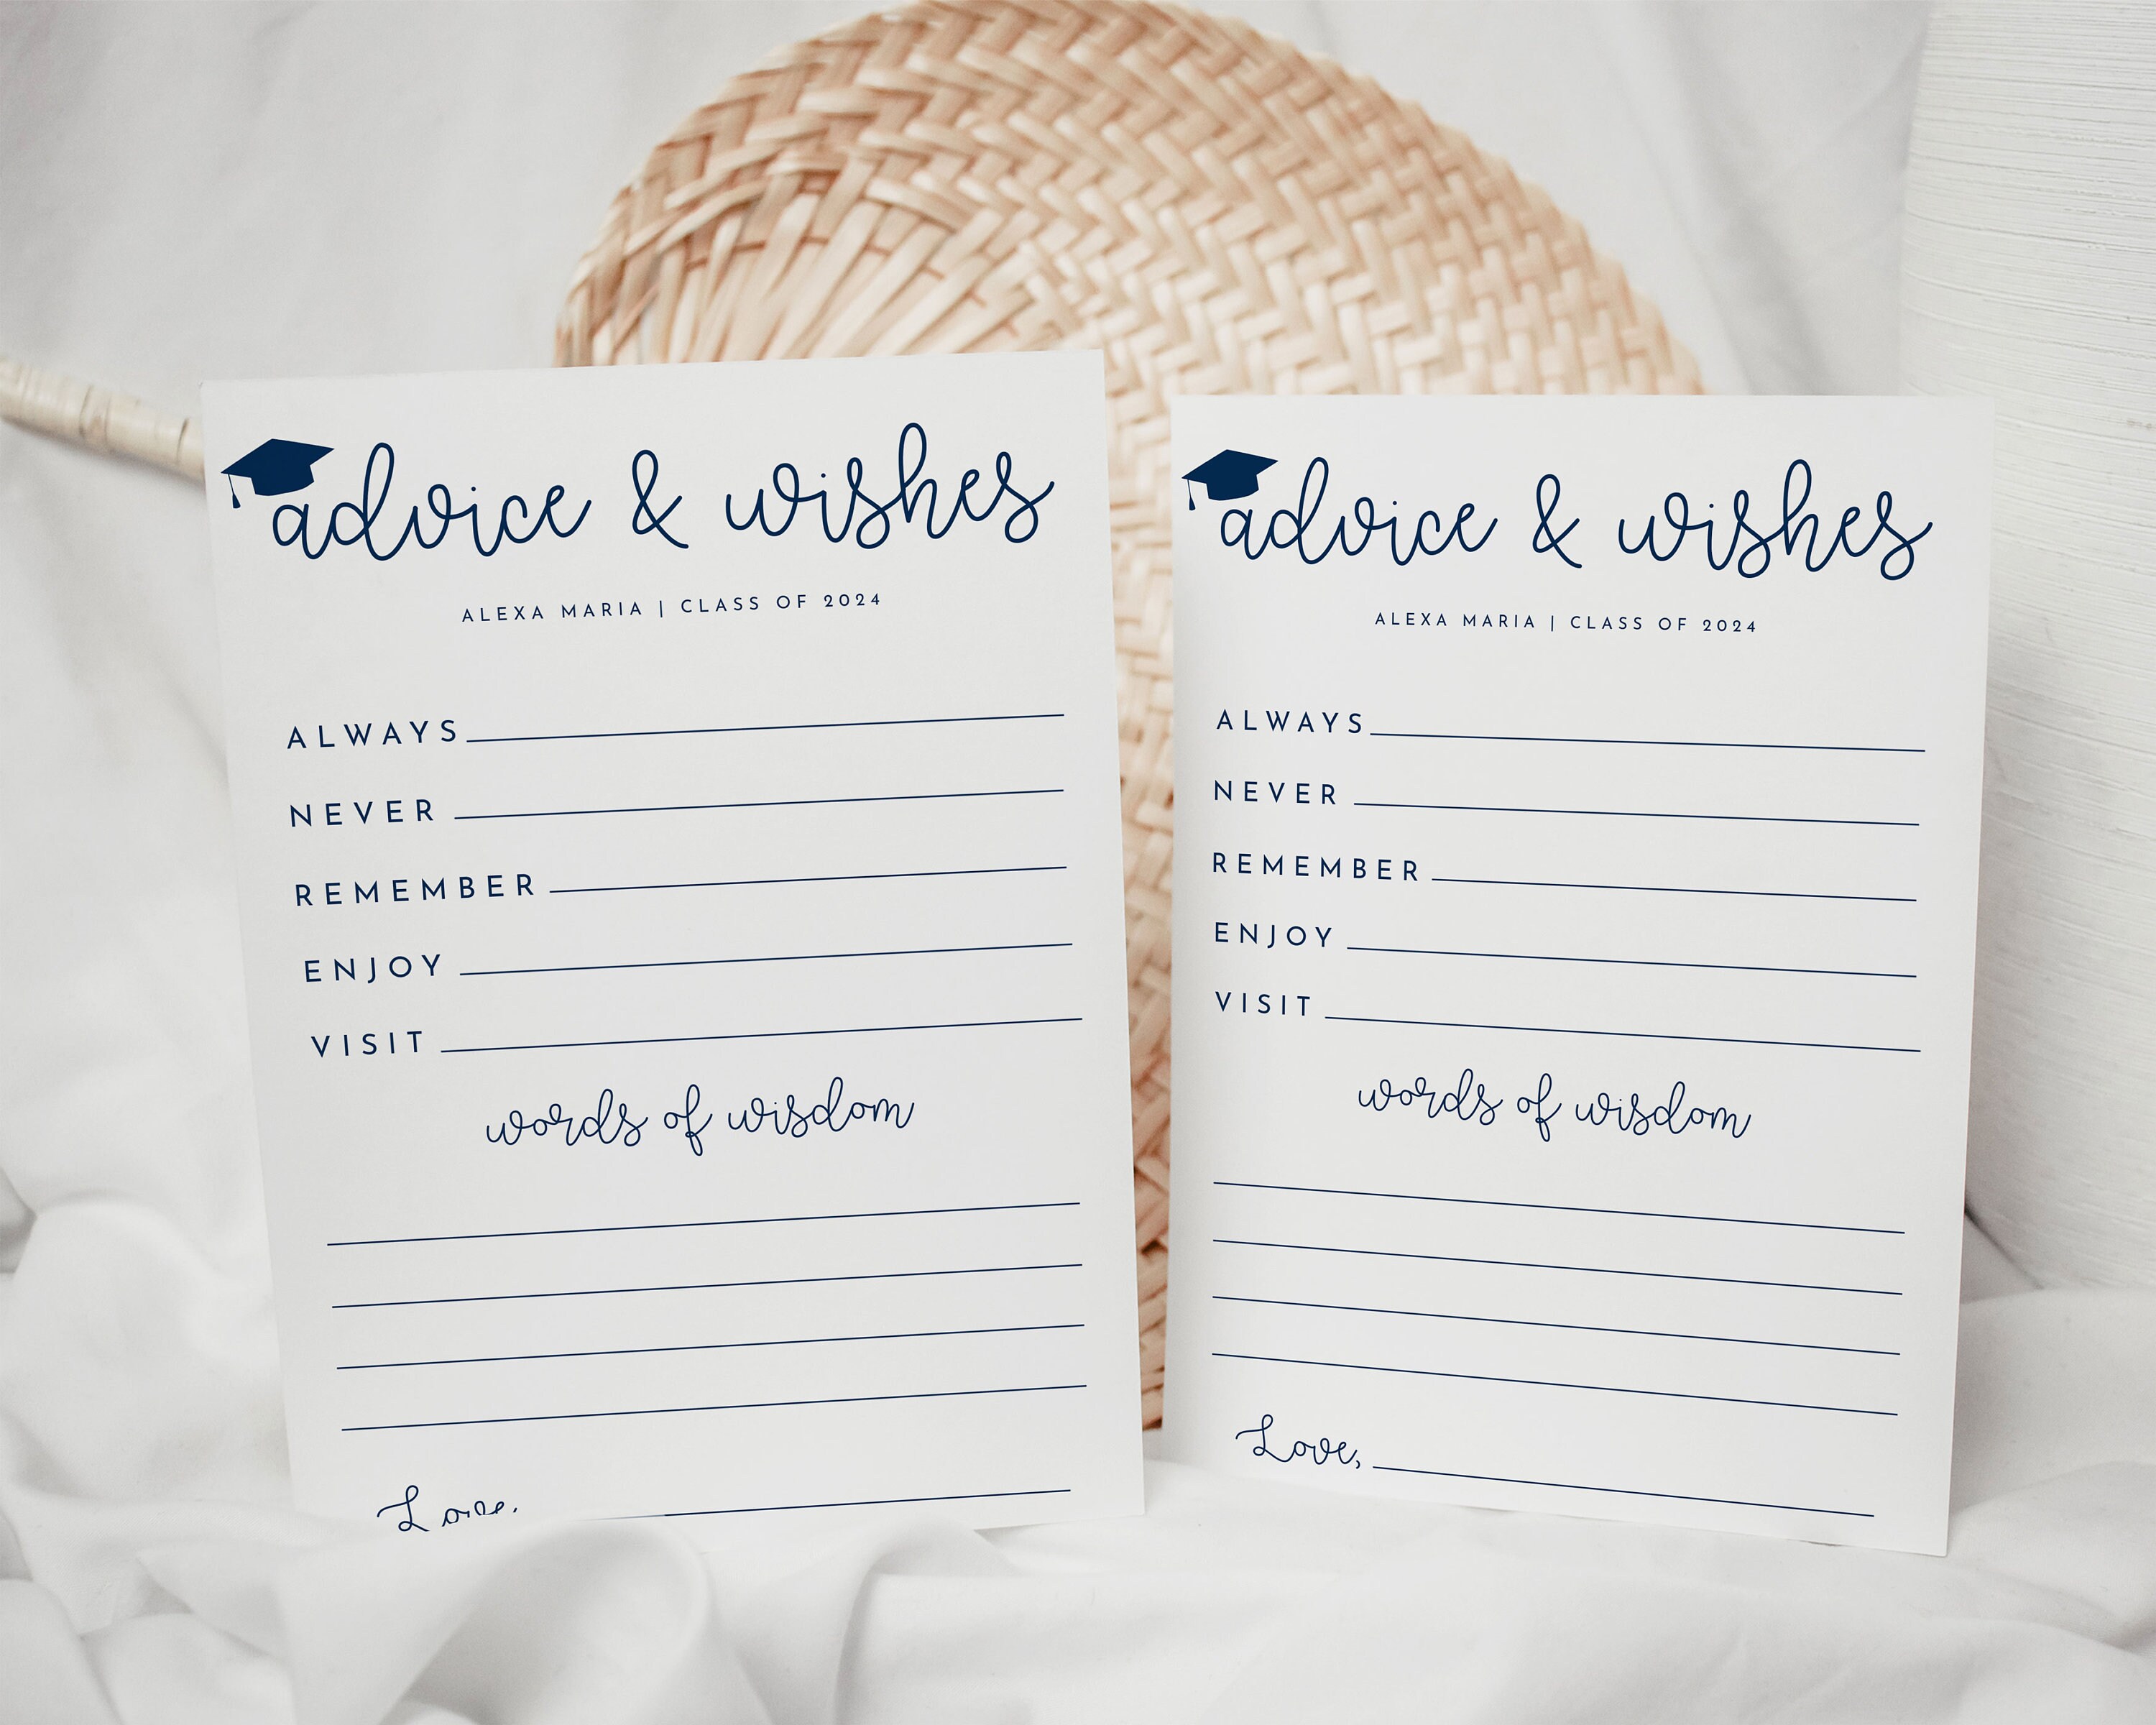 advice & wishes
ALEXA MARIA | CLASS OF 2024
ALWAYS
NEVER
REMEMBER
ENJOY
VISIT
words of wisdom
Love,
advice & wishes
ALEXA MARIA | CLASS OF 2024
ALWAYS
NEVER
REMEMBER
ENJOY
VISIT
words of wisdom
Love,